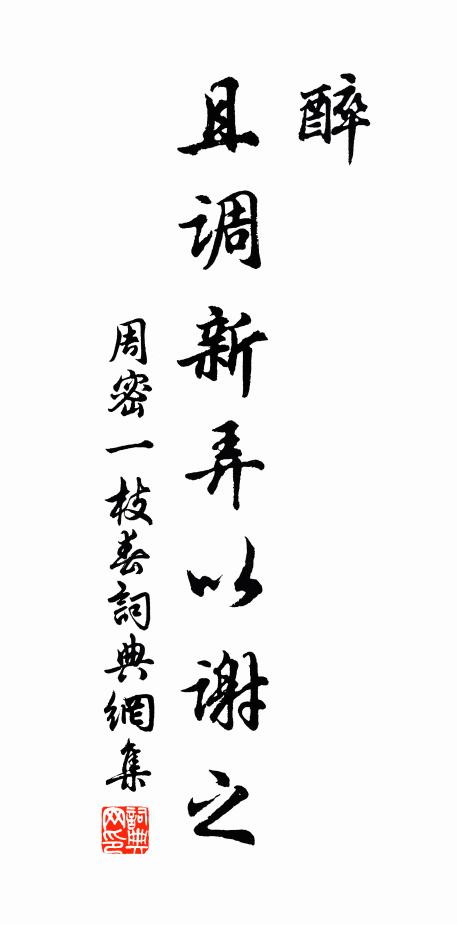 醉
且调新弄以谢之
周密一枝春詞典網集
詞典网印